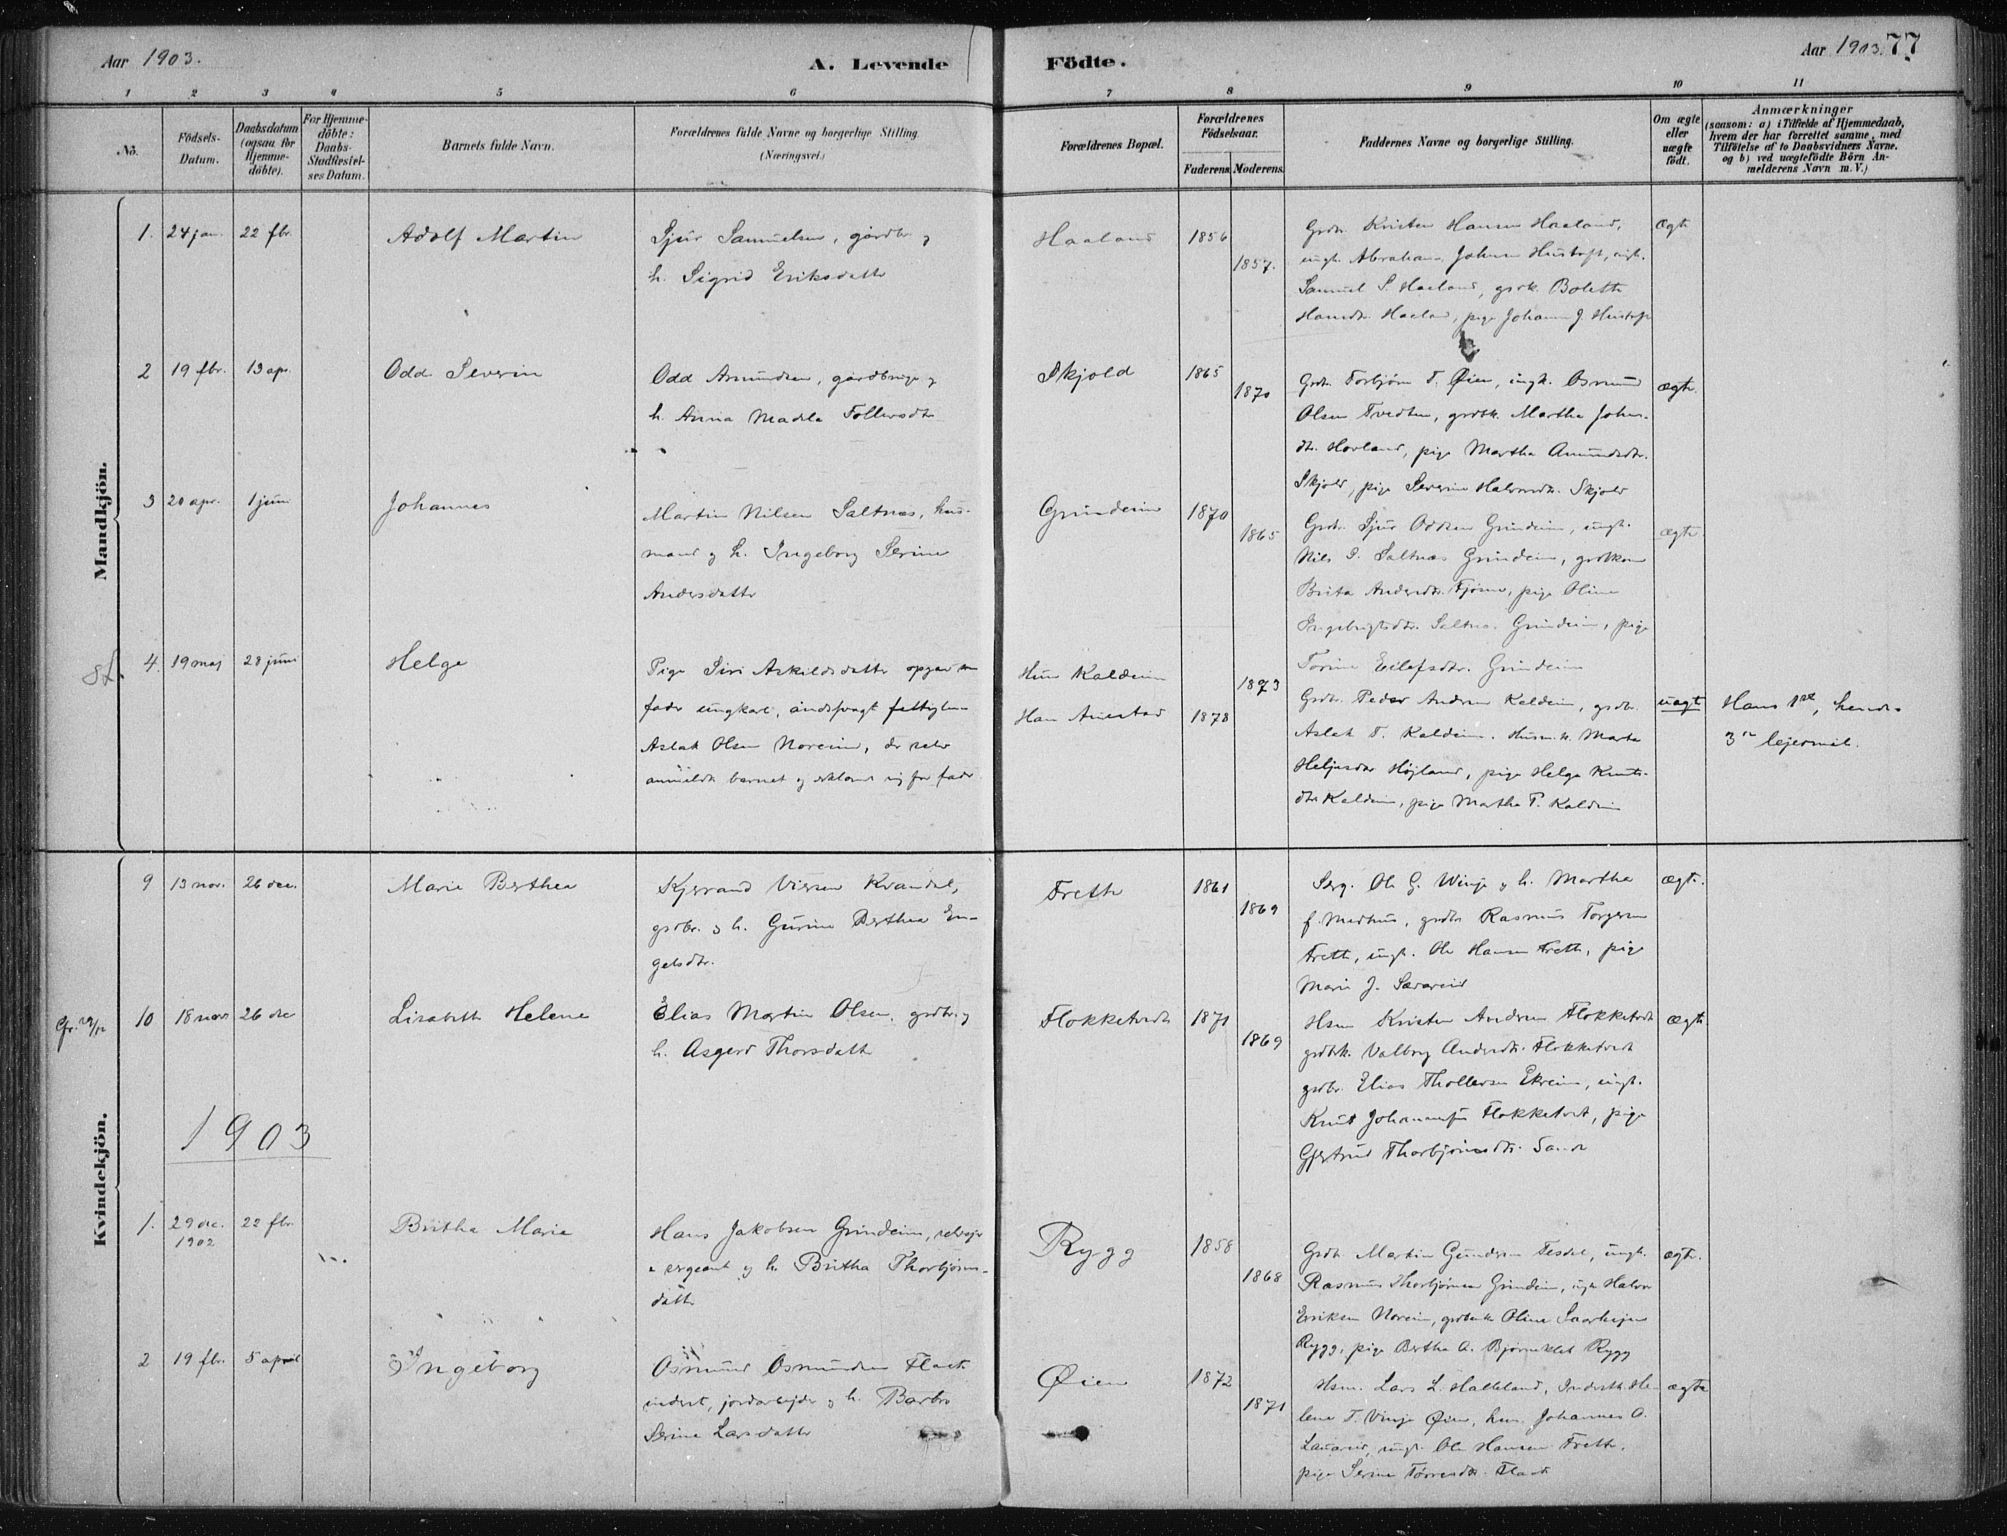 Aar 1903.
A. Levende Födte.
Aar 1903. 77
1 2 3 4 5 6 7 8 9 10 11
No.
Födsels-Datum.
Daabsdatum (ogsaa for Hjemme-döbte).
For Hjemme-döbte: Daabs-Stadfæstel-ses Datum.
Barnets fulde Navn.
Forældrenes fulde Navne og borgerlige Stilling. (Næringsvei.)
Forældrenes Bopæl.
Forældrenes Födselsaar.
Faderens. Moderens.
Faddernes Navne og borgerlige Stilling.
Om ægte eller uægte födt.
Anmærkninger
(saasom: a) i Tilfælde af Hjemmedaab,
hvem der har forrettet samme, med
Tilföielse af to Daabsvidners Navne.
og b) ved uægtefödte Börn An-
melderens Navn m.V.)
Mandkjön.
1. 24 jan. 22 fbr. Adolf Martin
Sjur Samuelsen, gårdbr. g
h. Sigrid Eriksdatter
Haaland 1856 1857.
Grdbr. Kristen Hansen Haaland,
ungk. Abraham Johnsen, ungk.
Samuel S. Haaland, grdk. Bolette
Hansdtr. Haaland, pige Johanne J.
Ægte
2 19 fbr. 13 apr. Odd Severin
Odd Amundsen, gårdbruger g
h. Anna Madela Tollersdtr
Skjold 1865 1870
Grdbr. Torbjørn T. Øien, ungk. Osmund
Olsen Tvedten, grdbk. Martha Johns-
dtr. Hovland, pige Martha Amundsdtr.
Skjold, pige Severine Halvorsdtr. Skjold
ægte.
3 20 apr. 1 juni Johannes
Martin Nilsen Saltnæs, hus-
mand g h. Ingeborg Serine
Andersdatter
Grindeim 1870 1865
Grdbr. Sjur Oddsen Grindeim, ungk.
Nils S. Saltnæs Grindeim, grdbkone
Brita Andersdtr. Fjøsne, pige Oline
Ingebrigtsdtr. Saltnæs Grindeim, pige
Torine Eilefsdtr. Grindeim
ægte
4. 19 maj 28 juni Helge
Pige Siri Askildsdatter opgav som
fader ungkarl, åndssvagt fattiglem
Aslak Olsen Noreim, der selv
anmeldte barnet g erklærede sig for fader
Hun Kaldeim 1873
Han Auestad 1878
Grdbr. Peder Andersen Kaldeim, grdbr.
Aslak T. Kaldeim. Husm.k. Marta
Heljesdtr Højland, pige Helga Knuts-
dtr Kaldeim, pige Martha P. Kaldeim
uægt
Hans 1ste, hendes
3die lejermål.
Kvindekjön.
9 13 nov. 26 dec. Marie Berthea
Kjerrand Viersen Kvandal,
grdbr. g h. Gurine Berthea En-
gelsdtr.
Frette 1861 1869
Serg. Ole G. Winje g h. Martha
f. Medhus, grdbr Rasmus Torgersen
Frette, ungk. Ole Hansen Frette, pige
Marie J.
ægte.
Cfr. 29/12
10 18 nov 26 dec Lisabeth Helene
Elias Martin Olsen, grdbr. g
h. Asgerd Thorsdatter
Flokketvedt 1871 1869
Hsm Kristen Andersen Flokketvedt
grdbk. Valborg Andersdtr. Flokketvedt
grdbr. Elias Thollersen Ekreim, ungk.
Knut Johannesen Flokketvet, pige
Gjertrud Thorbjörnsdtr. Sande
ægte
1903
1. 29 dec. 1902 22 fbr. Britha Marie
Hans Jakobsen Grindeim, selvejer
& sergeant g h. Britha Thorbjörns-
datter
Rygg 1858 1868
Grdbr. Martin Gundersen Tesdal, ungk.
Rasmus Thorbjørnsen Grindeim, ungk Halvor
Eriksen Noreim, grdbrk Oline
Rygg, pige Bertha A. Bjørneklet Rygg
ægte.
2 19 fbr. 5 april Ingeborg
Osmund Osmundsen Flaet
inderst, jordarbejder g h. Barbro
Serine Larsdatter
Øien 1872 1871
Hsm. Lars L. Halleland, Inderstk. He-
lene T. Vinje Øien, hsm. Johannes O.
ungk. Ole Hansen Frette,
pige Serine Tørresdtr. Flaet
ægte